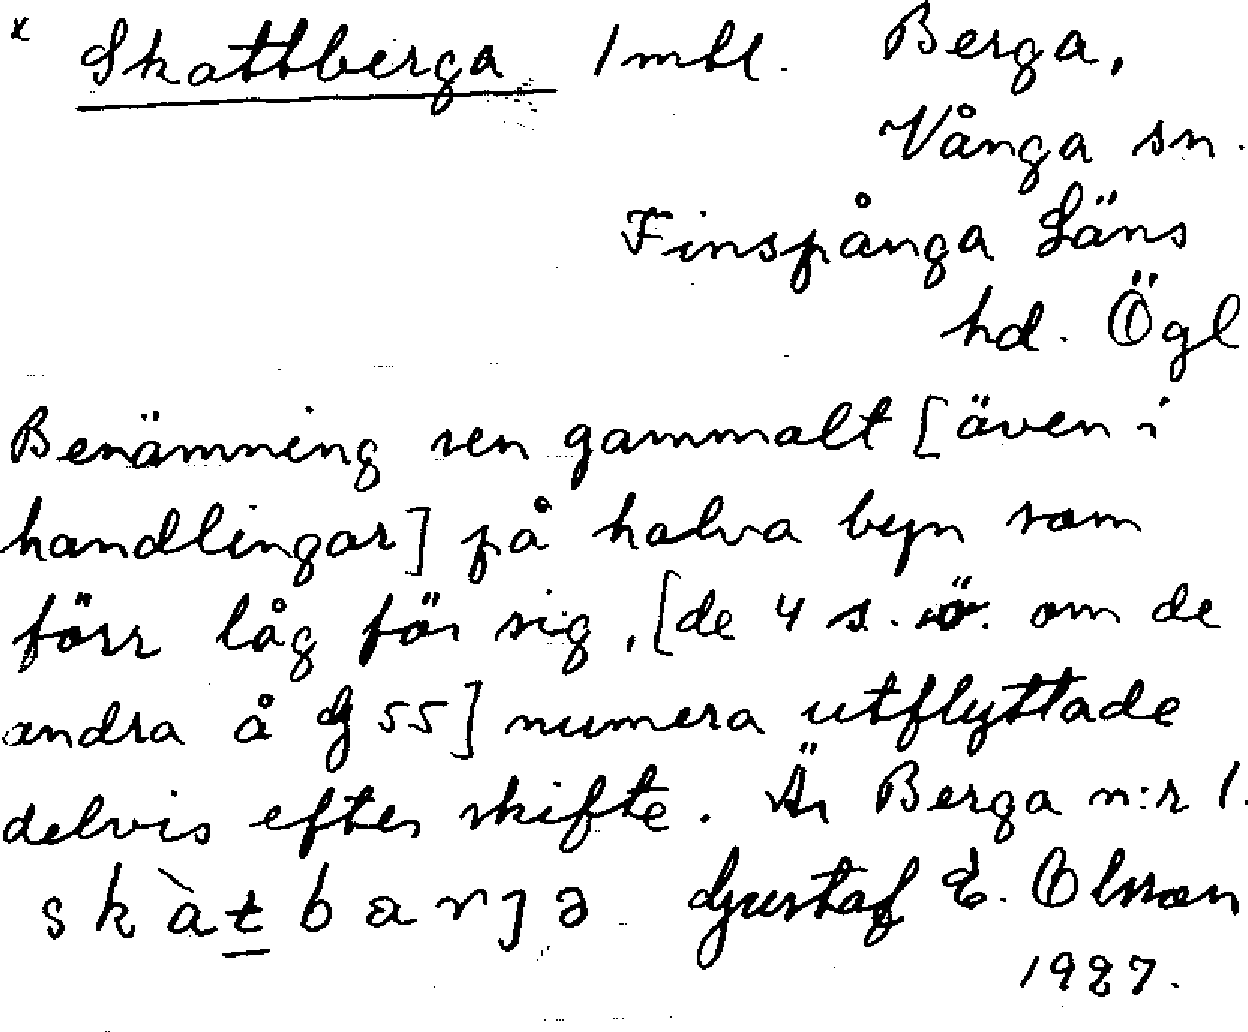 x Skattberga 1 mtl. Berga,
Vånga sn.
Finspånga Läns
hd. Ögl
Benämning sen gammalt [även i
handlingar] på halva byn som
förr låg för sig, [de 4 s. ö. om de
andra å G 55] numera utflyttade
delvis efter skifte. Är Berga n:r 1.
skàtbarjə Gustaf E. Olsson
1927.